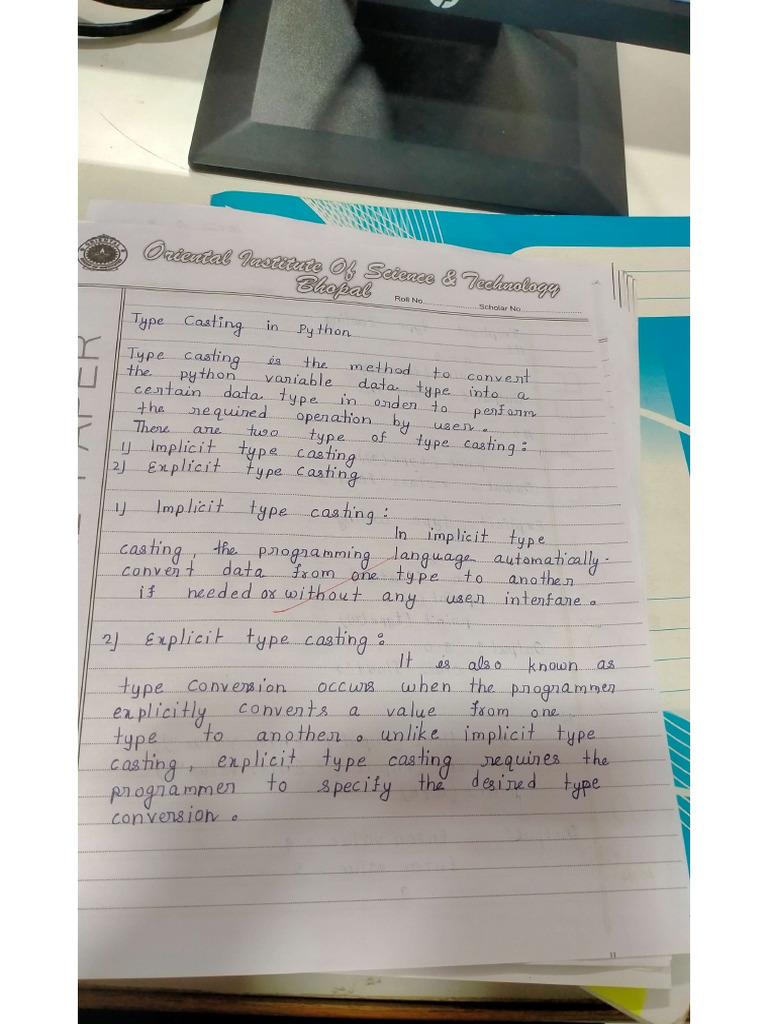 Oriental Institute Of Science & Technology
Bhopal
Roll No.................... Scholar No.....................
Type Casting in Python
Type casting is the method to convert
the python variable data type into a
certain data type in order to perform
the required operation by user.
There are two type of type casting:
1) Implicit type casting
2) Explicit type casting
1) Implicit type casting:
In implicit type
casting, the programming language automatically
convert data from one type to another
if needed or without any user interfare.
2) Explicit type casting:
It is also known as
type conversion occurs when the programmer
explicitly converts a value from one
type to another. unlike implicit type
casting, explicit type casting requires the
programmer to specify the desired type
conversion.